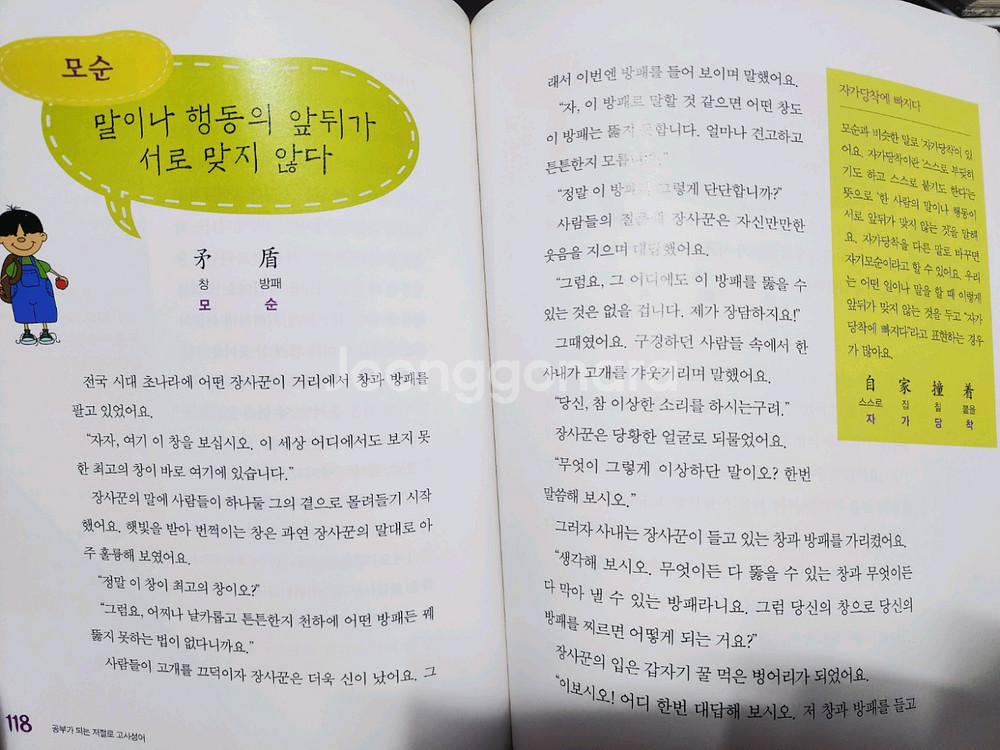 모순
말이나 행동의 앞뒤가
서로 맞지 않다
矛 盾
창 방패
모 순
전국 시대 초나라에 어떤 장사꾼이 거리에서 창과 방패를
팔고 있었어요.
“자자, 여기 이 창을 보십시오. 이 세상 어디에서도 보지 못
한 최고의 창이 바로 여기에 있습니다.”
장사꾼의 말에 사람들이 하나둘 그의 곁으로 몰려들기 시작
했어요. 햇빛을 받아 번쩍이는 창은 과연 장사꾼의 말대로 아
주 훌륭해 보였어요.
“정말 이 창이 최고의 창이오?”
“그럼요, 어찌나 날카롭고 튼튼한지 천하에 어떤 방패든 꿰
뚫지 못하는 법이 없다니까요.”
사람들이 고개를 끄덕이자 장사꾼은 더욱 신이 났어요. 그
118 공부가 되는 저절로 고사성어
래서 이번엔 방패를 들어 보이며 말했어요.
“자, 이 방패로 말할 것 같으면 어떤 창도
이 방패는 뚫지 못합니다. 얼마나 견고하고
튼튼한지 모릅니다.”
“정말 이 방패가 그렇게 단단합니까?”
사람들의 질문에 장사꾼은 자신만만한
웃음을 지으며 대답했어요.
“그럼요, 그 어디에도 이 방패를 뚫을 수
있는 것은 없을 겁니다. 제가 장담하지요!”
그때였어요. 구경하던 사람들 속에서 한
사내가 고개를 갸웃거리며 말했어요.
“당신, 참 이상한 소리를 하시는구려.”
장사꾼은 당황한 얼굴로 되물었어요.
“무엇이 그렇게 이상하단 말이오? 한번
말씀해 보시오.”
그러자 사내는 장사꾼이 들고 있는 창과 방패를 가리켰어요.
“생각해 보시오. 무엇이든 다 뚫을 수 있는 창과 무엇이든
다 막아 낼 수 있는 방패라니요. 그럼 당신의 창으로 당신의
방패를 찌르면 어떻게 되는 거요?”
장사꾼의 입은 갑자기 꿀 먹은 벙어리가 되었어요.
“이보시오! 어디 한번 대답해 보시오. 저 창과 방패를 들고
자가당착에 빠지다
모순과 비슷한 말로 ‘자가당착’이 있
어요. 자가당착이란 ‘스스로 부딪히
기도 하고 스스로 붙기도 한다’는
뜻으로 ‘한 사람의 말이나 행동이
서로 앞뒤가 맞지 않는 것’을 말해
요. 자가당착을 다른 말로 바꾸면
자기모순이라고 할 수 있어요. 우리
는 어떤 일이나 말을 할 때 이렇게
앞뒤가 맞지 않는 것을 두고 “자가
당착에 빠지다”라고 표현하는 경우
가 많아요.
自 家 撞 着
스스로 집 칠 붙을
자 가 당 착
loonggonara